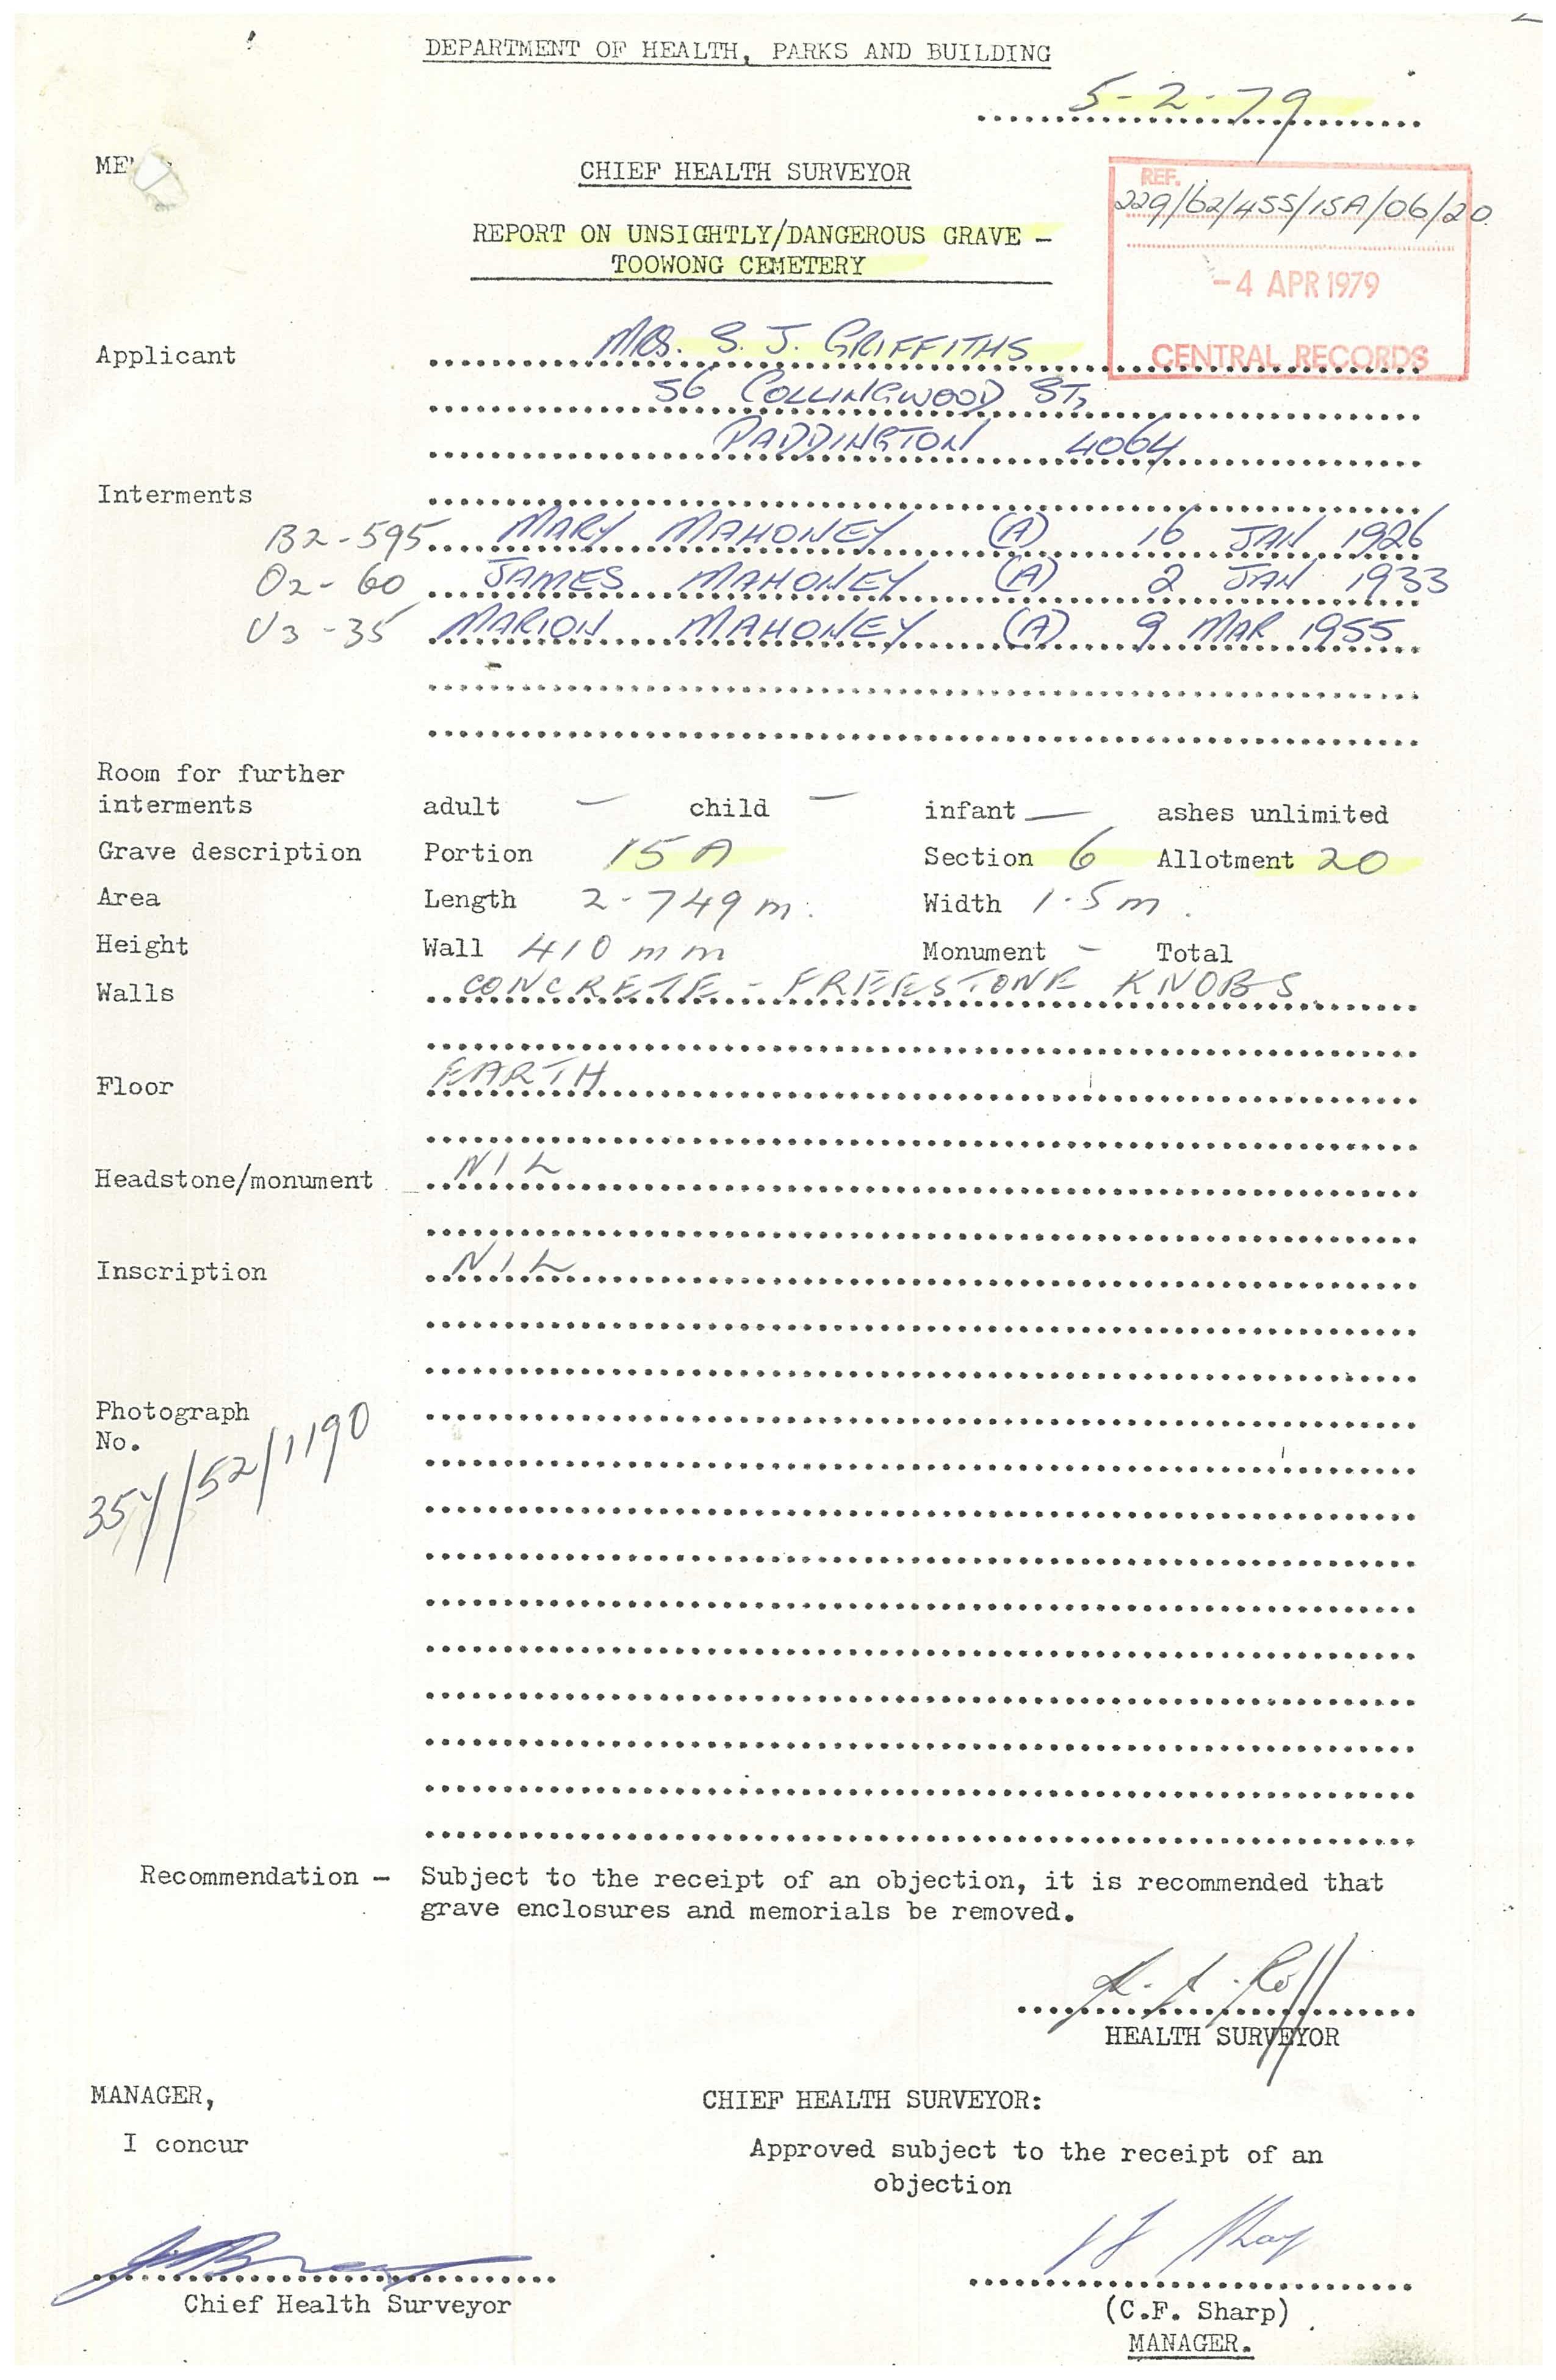 DEPARTMENT OF HEALTH, PARKS AND BUILDING
5-2-79
CHIEF HEALTH SURVEYOR
REF.
229/62/455/15A/06/20
REPORT ON UNSIGHTLY/DANGEROUS GRAVE -
TOOWONG CEMETERY
-4 APR 1979
CENTRAL RECORDS
Applicant MRS. S. J. GRIFFITHS
56 COLLINGWOOD ST,
PADDINGTON 4064
Interments
B2-595 MARY MAHONEY (A) 16 JAN 1926
O2-60 JAMES MAHONEY (A) 2 JAN 1933
U3-35 MARION MAHONEY (A) 9 MAR 1955
Room for further
interments adult - child - infant - ashes unlimited
Grave description Portion 15A Section 6 Allotment 20
Area Length 2.749 m. Width 1.5 m.
Height Wall 410 mm Monument - Total
Walls CONCRETE - FREESTONE KNOBS
Floor EARTH
Headstone/monument NIL
Inscription NIL
Photograph
No.
354/52/1190
Recommendation - Subject to the receipt of an objection, it is recommended that
grave enclosures and memorials be removed.
HEALTH SURVEYOR
MANAGER, CHIEF HEALTH SURVEYOR:
I concur Approved subject to the receipt of an
objection
Chief Health Surveyor (C.F. Sharp)
MANAGER.